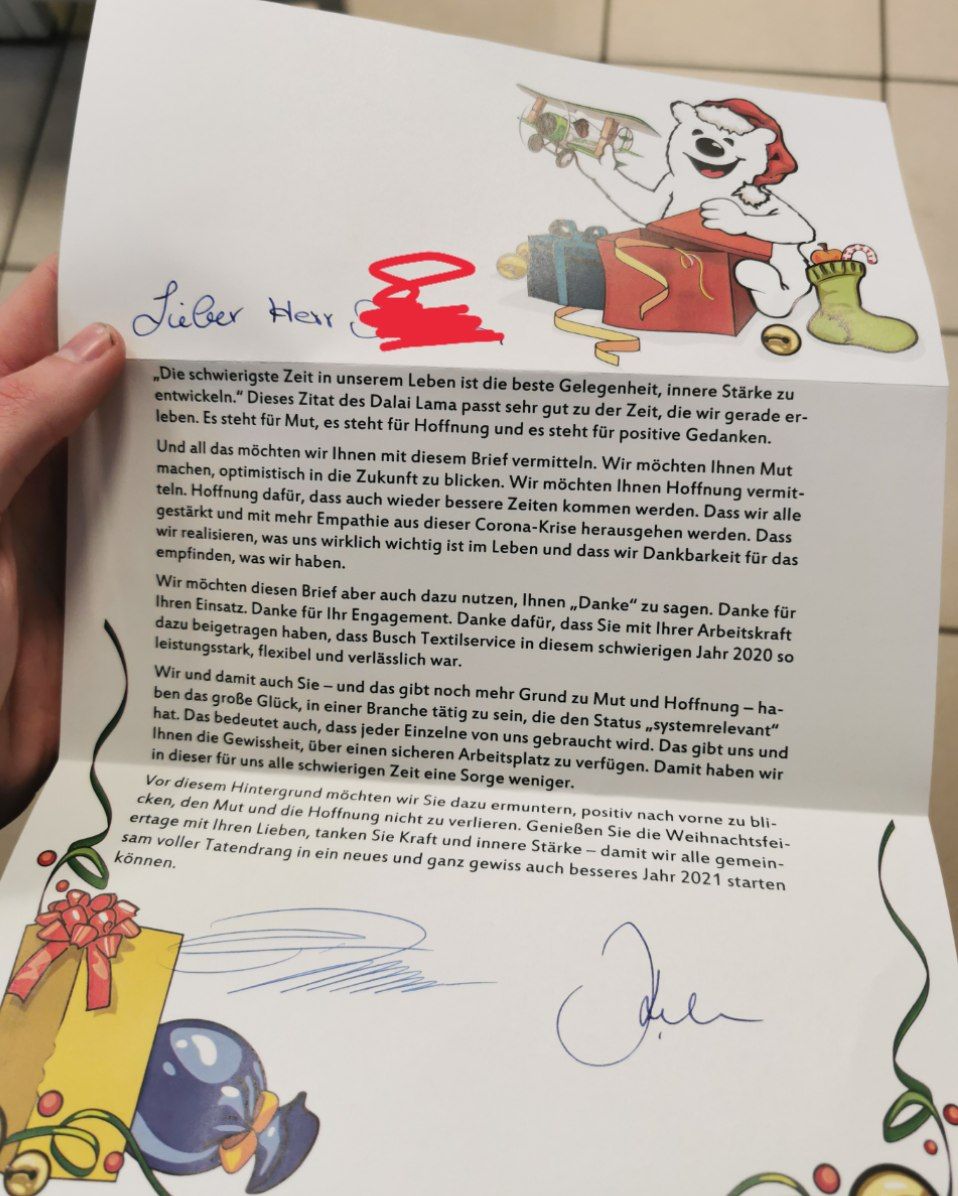 Lieber Herr
„Die schwierigste Zeit in unserem Leben ist die beste Gelegenheit, innere Stärke zu
entwickeln.“ Dieses Zitat des Dalai Lama passt sehr gut zu der Zeit, die wir gerade er-
leben. Es steht für Mut, es steht für Hoffnung und es steht für positive Gedanken.
Und all das möchten wir Ihnen mit diesem Brief vermitteln. Wir möchten Ihnen Mut
machen, optimistisch in die Zukunft zu blicken. Wir möchten Ihnen Hoffnung vermit-
teln. Hoffnung dafür, dass auch wieder bessere Zeiten kommen werden. Dass wir alle
gestärkt und mit mehr Empathie aus dieser Corona-Krise herausgehen werden. Dass
wir realisieren, was uns wirklich wichtig ist im Leben und dass wir Dankbarkeit für das
empfinden, was wir haben.
Wir möchten diesen Brief aber auch dazu nutzen, Ihnen „Danke“ zu sagen. Danke für
Ihren Einsatz. Danke für Ihr Engagement. Danke dafür, dass Sie mit Ihrer Arbeitskraft
dazu beigetragen haben, dass Busch Textilservice in diesem schwierigen Jahr 2020 so
leistungsstark, flexibel und verlässlich war.
Wir und damit auch Sie – und das gibt noch mehr Grund zu Mut und Hoffnung – ha-
ben das große Glück, in einer Branche tätig zu sein, die den Status „systemrelevant“
hat. Das bedeutet auch, dass jeder Einzelne von uns gebraucht wird. Das gibt uns und
Ihnen die Gewissheit, über einen sicheren Arbeitsplatz zu verfügen. Damit haben wir
in dieser für uns alle schwierigen Zeit eine Sorge weniger.
Vor diesem Hintergrund möchten wir Sie dazu ermuntern, positiv nach vorne zu bli-
cken, den Mut und die Hoffnung nicht zu verlieren. Genießen Sie die Weihnachtsfei-
ertage mit Ihren Lieben, tanken Sie Kraft und innere Stärke – damit wir alle gemein-
sam voller Tatendrang in ein neues und ganz gewiss auch besseres Jahr 2021 starten
können.